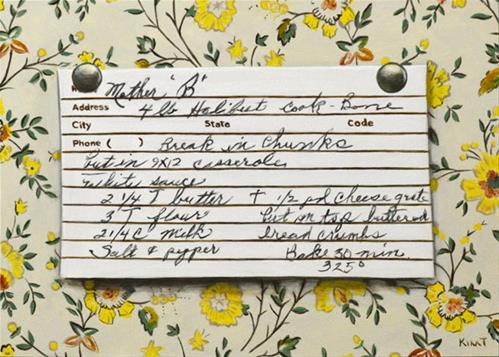 Mother "B"
Address 4 lb Halibut Cook - Bone
City State Code
Phone ( ) Break in Chunks
Put in 9X12 casserole
White sauce
2 1/4 T butter + 1/2 pd cheese grate
3 T flour Put on top buttered
2 1/4 C milk bread crumbs
Salt & pepper Bake 30 min.
325°
KIMT